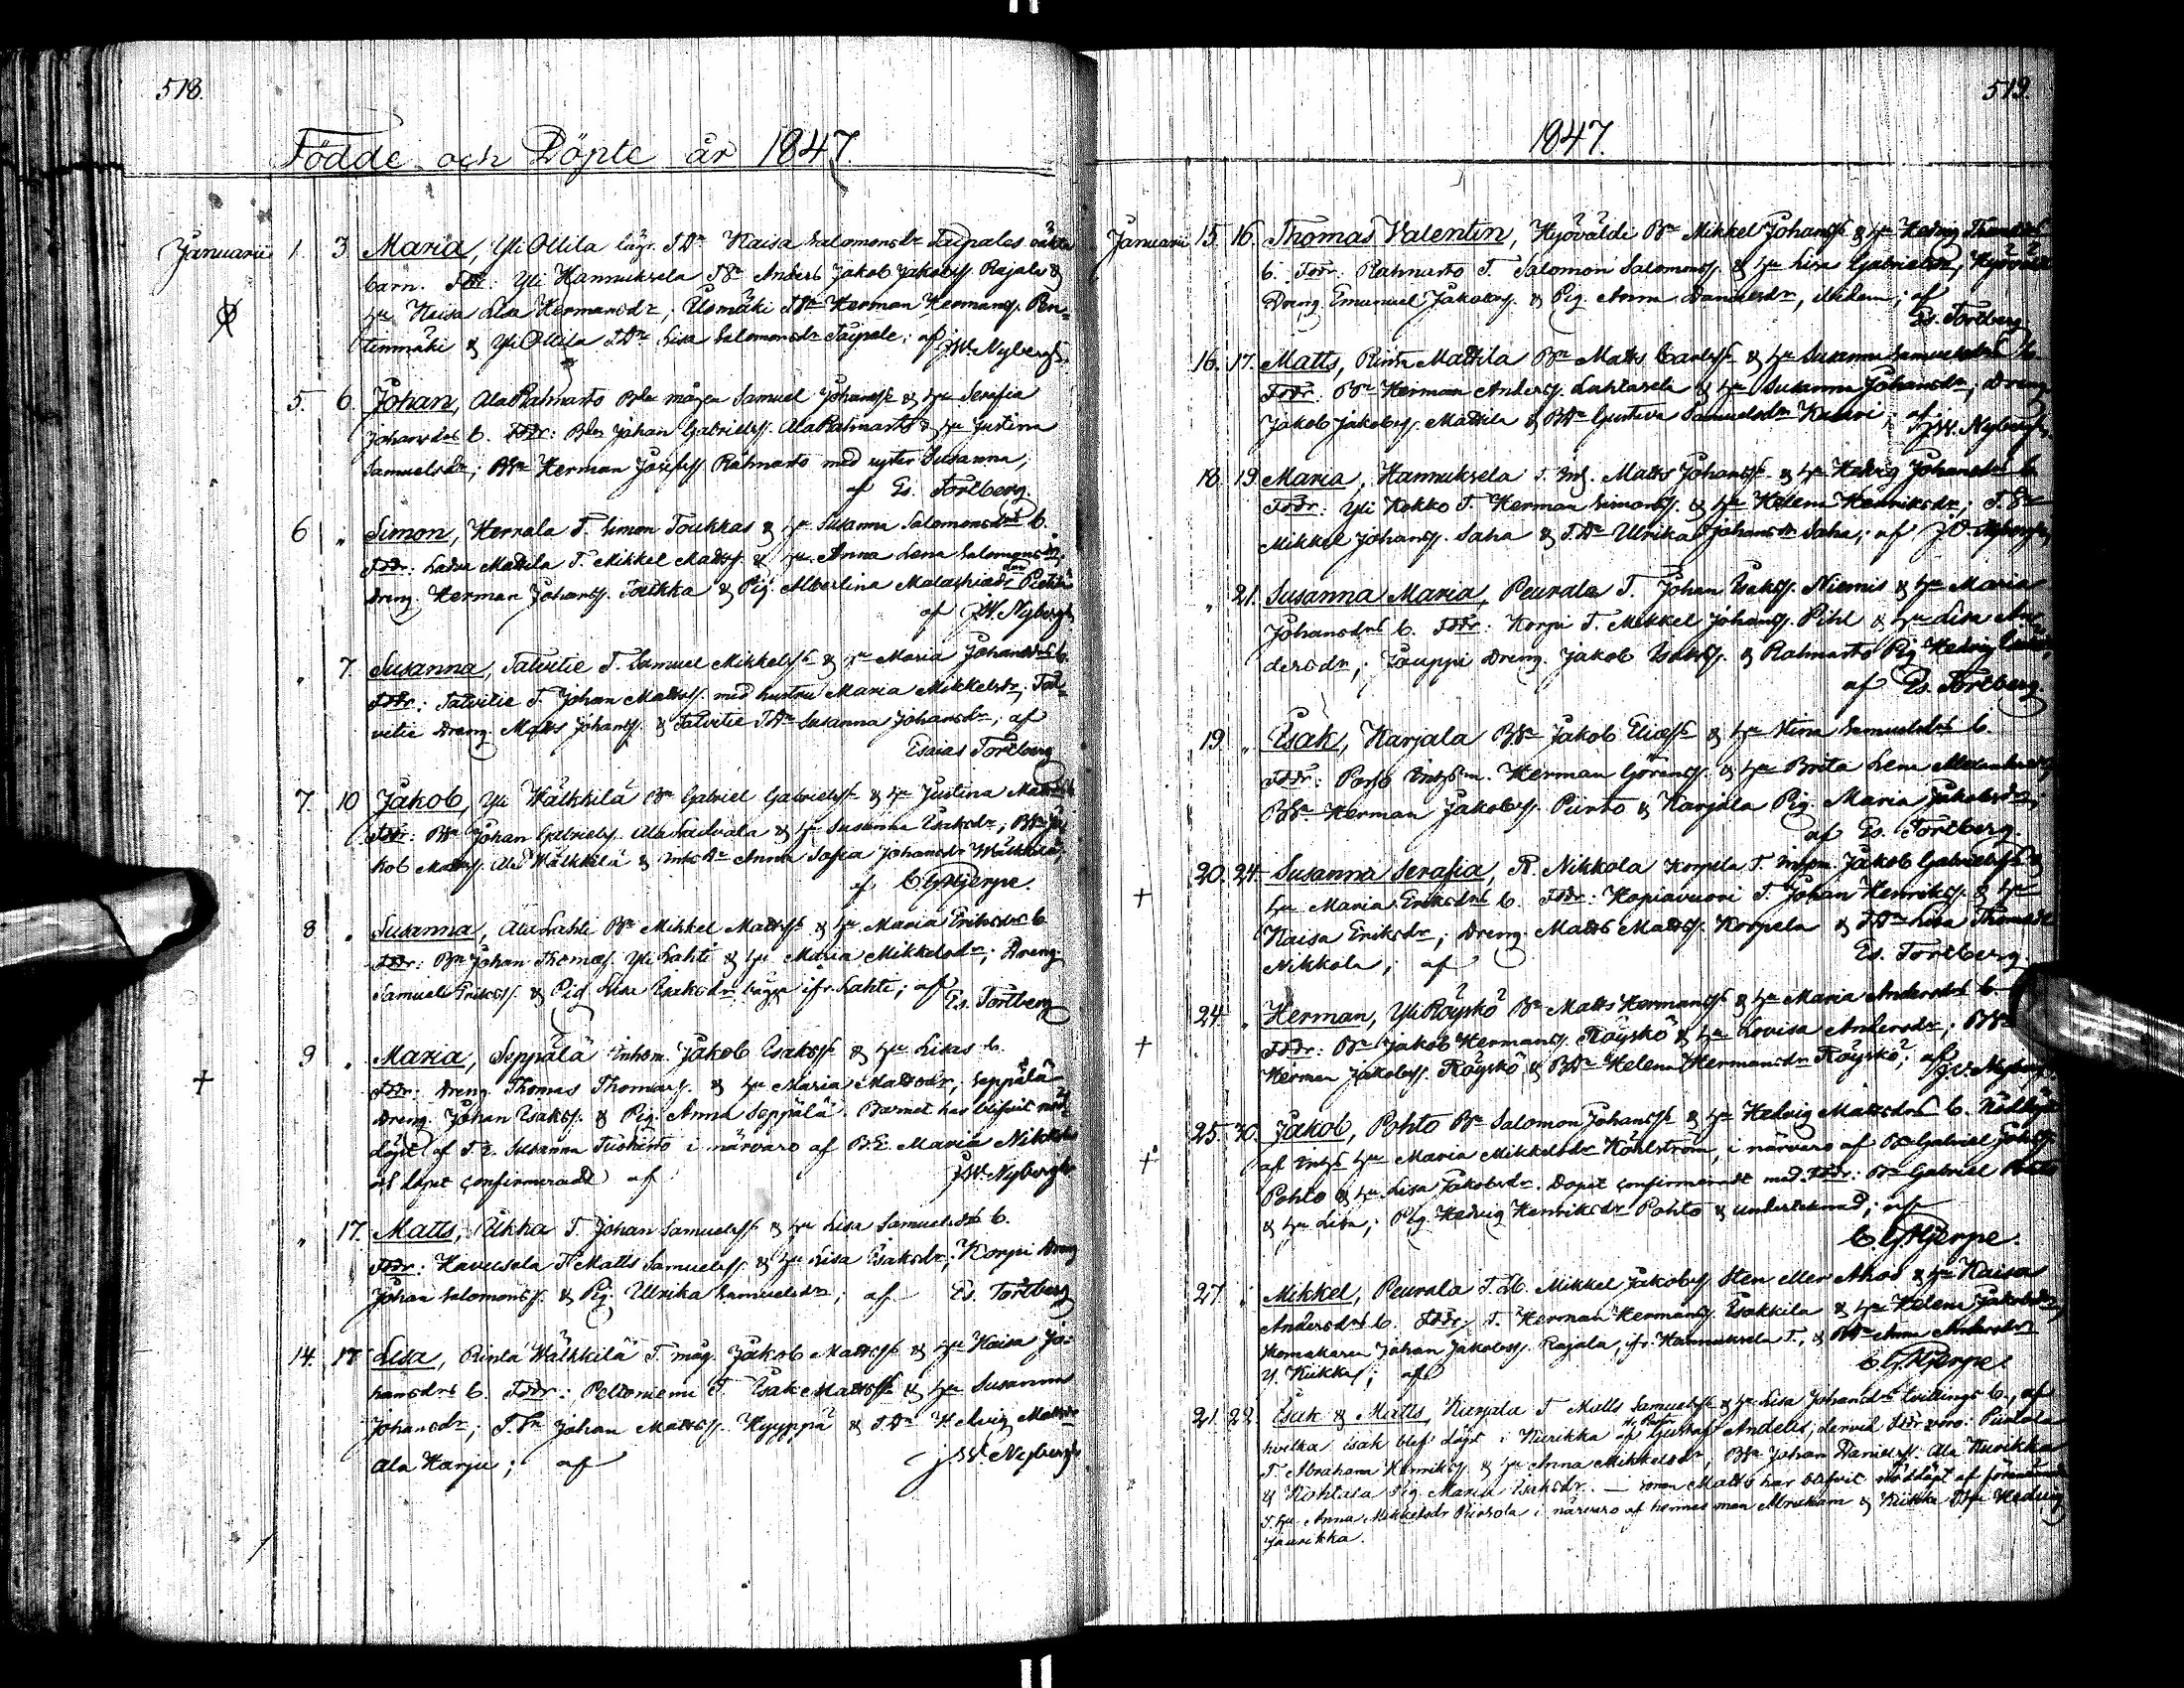 518.
Födde och Döpte år 1847.
Januarii 1. 3 Maria, Yli Ollila lägr. TDr Kaisa Salomonsdr Taipales oäkta
barn. Fddr: Yli Hannuksela TSn Anders Jakob Jakobss. Rajala &
hu Kaisa Lisa Hermansdr, Usmäki TSn Herman Hermanss. Pen-
tinmäki & Yli Ollila TDr Lisa Salomonsdr Taipale; af JW. Nybergh.
5. 6. Johan, Ala Rahnasto Bde mågen Samuel Johanss & hu Serafia
Johansdrs b. Fddr: Bdn Johan Gabrielss. Ala Rahnasto & hu Justina
Samuelsdr; BSn Herman Josefss Rahnasto med syster Susanna;
af Es. Fortberg.
6 " Simon, Herrala T. Simon Toukkas & hu Susanna Salomonsdrs b.
Fddr: Ladva Mattila T. Mikkel Mattss. & hu Anna Lena Salomonsdr,
Dreng. Herman Johanss. Toukka & Pig. Albertina Malachiædr
af JW. Nybergh
" 7. Susanna, Talvitie T. Samuel Mikkelss & hu Maria Johansdrs b.
Fddr: Talvitie T. Johan Mattss. med hustru Maria Mikkelsdr, Tal-
vitie Dreng Matts Johanss. & Talvitie TDr Susanna Johansdr, af
Esaias Fortberg
7. 10 Jakob, Yli Wälkkilä Bn Gabriel Gabrielss & hu Justina Mattsdrs
Fddr: BSn Johan Gabrielss. Ala Ladvala & hu Susanna Esaksdr; BSn Ja-
kob Mattss. Ala Wälkkilä & InhsDr Anna Sofia Johansdr Wälkkilä,
af C. G. Hjerpe.
8 " Susanna, Ala Lahti Bn Mikkel Mattss & hu Maria Eriksdrs b
Fddr: Bn Johan Thomæss. Yli Lahti & hu Maria Mikkelsdr; Dreng
Samuel Erikss. & Pig Lisa Esaksdr bägge ifr. Lahti; af
Es. Fortberg
9 " Maria, Seppälä Inhsm. Jakob Esakss & hu Lisas b.
Fddr: Dreng Thomas Thomass. & hu Maria Mattsdr, Seppälä
Dreng. Johan Esakss. & Pig. Anna Seppälä. Barnet har blifvit nöd-
döpt af T. E. Susanna i närvaro af B. E. Maria
och dopet confirmeradt af JW. Nybergh
" 17. Matts, Ukkha T. Johan Samuelss & hu Lisa Samuelsdrs b.
Fddr: Havusela T Matts Samuelss. & hu Lisa Esaksdr, Korpi Dreng
Johan Salomonss. & Pig. Ulrika Samuelsdr; af Es. Fortberg
14. 17 Lisa, Rinta Wälkkilä T. måg. Jakob Mattss & hu Kaisa Jo-
hansdrs b. Fddr: Peltoniemi T. Esak Mattss. & hu Susanna
Johansdr; T. Sn Johan Mattss. Hyyppä & T.Dr Hedvig Mattsdr
Ala Harju; af JW. Nybergh
519.
1847.
Januarii 15. 16. Thomas Valentin, Hyövälde Bn Mikkel Johanss & hu Hedvig Thomædrs
b. Fddr: Rahnasto T. Salomon Salomonss. & hu Lisa Gabrielsdr, Hyövälde
Dreng Emanuel Jakobss. & Pig. Anna Danielsdr, ibidem; af
Es. Fortberg
16. 17. Matts, Rinta Mattila Bn Matts Carlss & hu Susanna Samuelsdrs b.
Fddr: Bn Herman Anderss. Luhtasela & hu Susanna Johansdr; Dreng
Jakob Jakobss. Mattila & BDr Gustava Samuelsdr; af JW. Nybergh.
18. 19. Maria, Hannuksela T. Inh. Matts Johanss & hu Hedvig Johansdrs b.
Fddr: Yli Kokko T. Herman Simonss. & hu Helena Henriksdr; T. Sn
Mikkel Johanss. Saha & T.Dr Ulrika Johansdr Saha; af
" 21. Susanna Maria, Peurala T. Johan Esakss. Niemis & hu Maria
Johansdrs b. Fddr: Korpi T. Mikkel Johanss. Pihl & hu Lisa An-
dersdr; Jauppi Dreng. Jakob Esakss. & Rahnasto Pig Hedvig
af Es. Fortberg.
19 " Esak, Karjala BSn Jakob Eliæss & hu Stina Samuelsdrs b.
Fddr: Inhsm. Herman Göranss. & hu Brita Lena
BSn Herman Jakobss. Piirto & Karjala Pig. Maria Jakobsdr,
af Es. Fortberg.
20. 24. Susanna Serafia, R. Nikkola Korpela T. Inhsm. Jakob Gabrielss &
hu Maria Eriksdrs b. Fddr: Kopiavuori T. Johan Henrikss. & hu
Kaisa Eriksdr; Dreng. Matts Mattss. Korpela & TDr Lisa Thomædr
Nikkola; af Es. Fortberg.
24. " Herman, Yli Röyskö Bn Matts Hermanss & hu Maria Andersdrs b.
Fddr: Bn Jakob Hermanss. Röyskö & hu Lovisa Andersdr; BSn
Herman Jakobss. Röyskö & BDr Helena Hermansdr Röyskö; af
25. 30. Jakob, Pohto Bn Salomon Johanss & hu Hedvig Mattsdrs b. Nöddöpt
af Inhs hu Maria Mikkelsdr Kohlström, i närvaro af Bn Gabriel
Pohto & hu Lisa Jakobsdr. Dopet confirmeradt med. Fddr: Bn Gabriel Pohto
& hu Lisa; Pig. Hedvig Henriksdr Pohto & undertecknad; af
C. G. Hjerpe.
27 " Mikkel, Peurala T. Mikkel Jakobss. Sten eller Ahos & hu Kaisa
Andersdrs b. Fddr: T. Herman Hermanss. Esakkila & hu Helena Jakobsdr,
Skomakaren Johan Jakobss. Rajala, ifr. Hannuksela T., & BDr Anna Andersdr
Y. Kukka; af C. G. Hjerpe.
21. 22. Esak & Matts, Karjala T Matts Samuelss & hu Lisa Johansdrs tvillings b., af
hvilka Esak blef döpt i Kurikka af Gustaf Andelin, dervid Fddr voro:
T. Abraham Henrikss & hu Anna Mikkelsdr, BSn Johan Danielss. Ala Kurikka
& Kohtala Pig. Maria Esaksdr. — Sonen Matts har blifvit nöddöpt af förenämnde
T. hu Anna Mikkelsdr i närvaro af hennes man Abraham & Hedvig
Jaurikka.